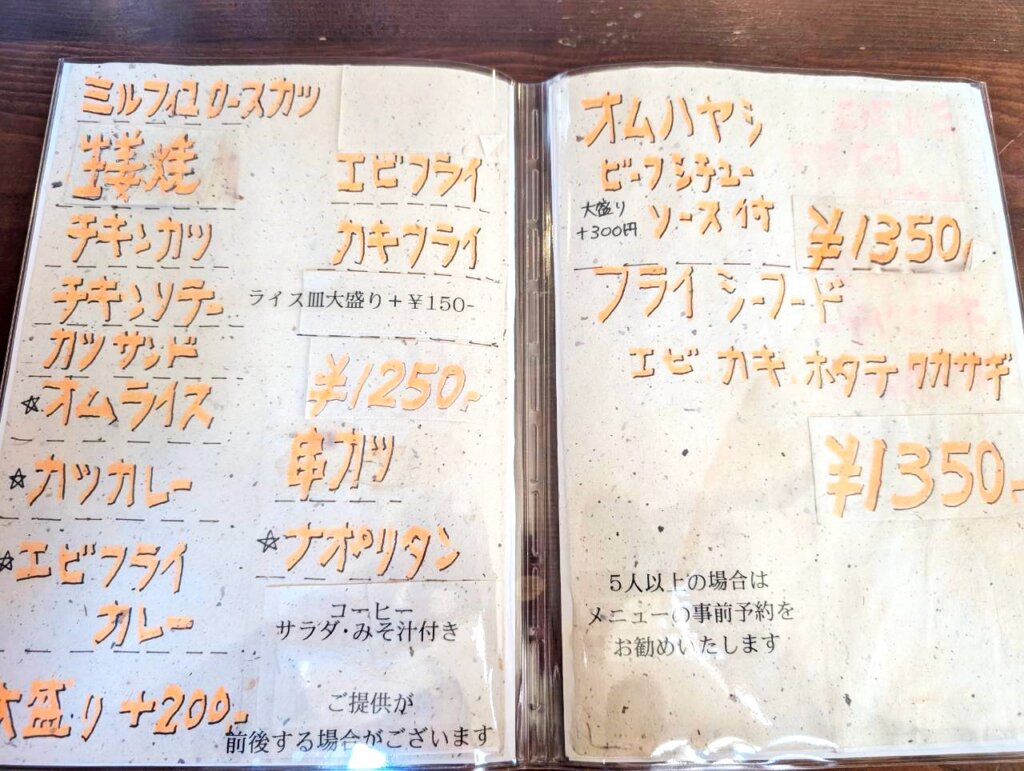 ミルフィユロースカツ
生姜焼
チキンカツ
チキンソテー
カツサンド
☆オムライス
☆カツカレー
☆エビフライ
カレー
大盛り+200-
エビフライ
カキフライ
ライス皿大盛り+¥150-
¥1250-
串カツ
☆ナポリタン
コーヒー
サラダ・みそ汁付き
ご提供が
前後する場合がございます
オムハヤシ
ビーフシチュー
ソース付
大盛り
+300円
¥1350,
フライシーフード
エビ カキ、ホタテ ワカサギ
¥1350-
5人以上の場合は
メニューの事前予約を
お勧めいたします